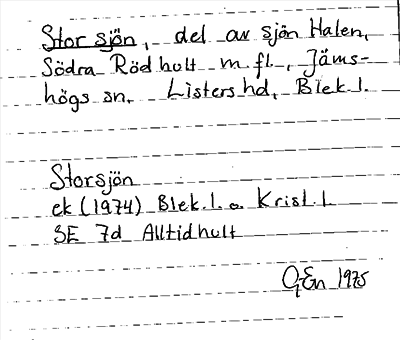 Storsjön, del av sjön Halen,
Södra Rödhult m.fl., Jäms-
högs sn, Listers hd, Blek.l.
Storsjön
ek (1974) Blek.l. o. Krist.l
3E 7d Alltidhult
1975